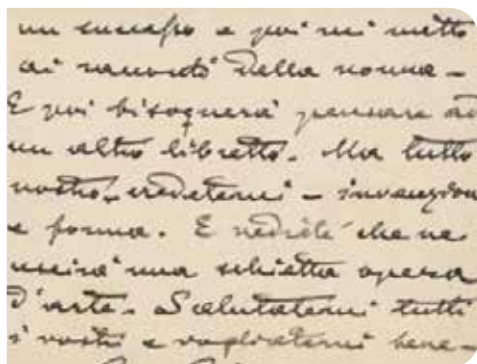 un successo e poi mi metto
ai racconti della nonna -
E poi bisognerà pensare ad
un altro libretto. Ma tutto
nostro, credetemi - invenzion
e forma. E vedrete che ne
uscirà una schietta opera
d'arte. Salutatemi tutti
i vostri e vogliatemi bene -